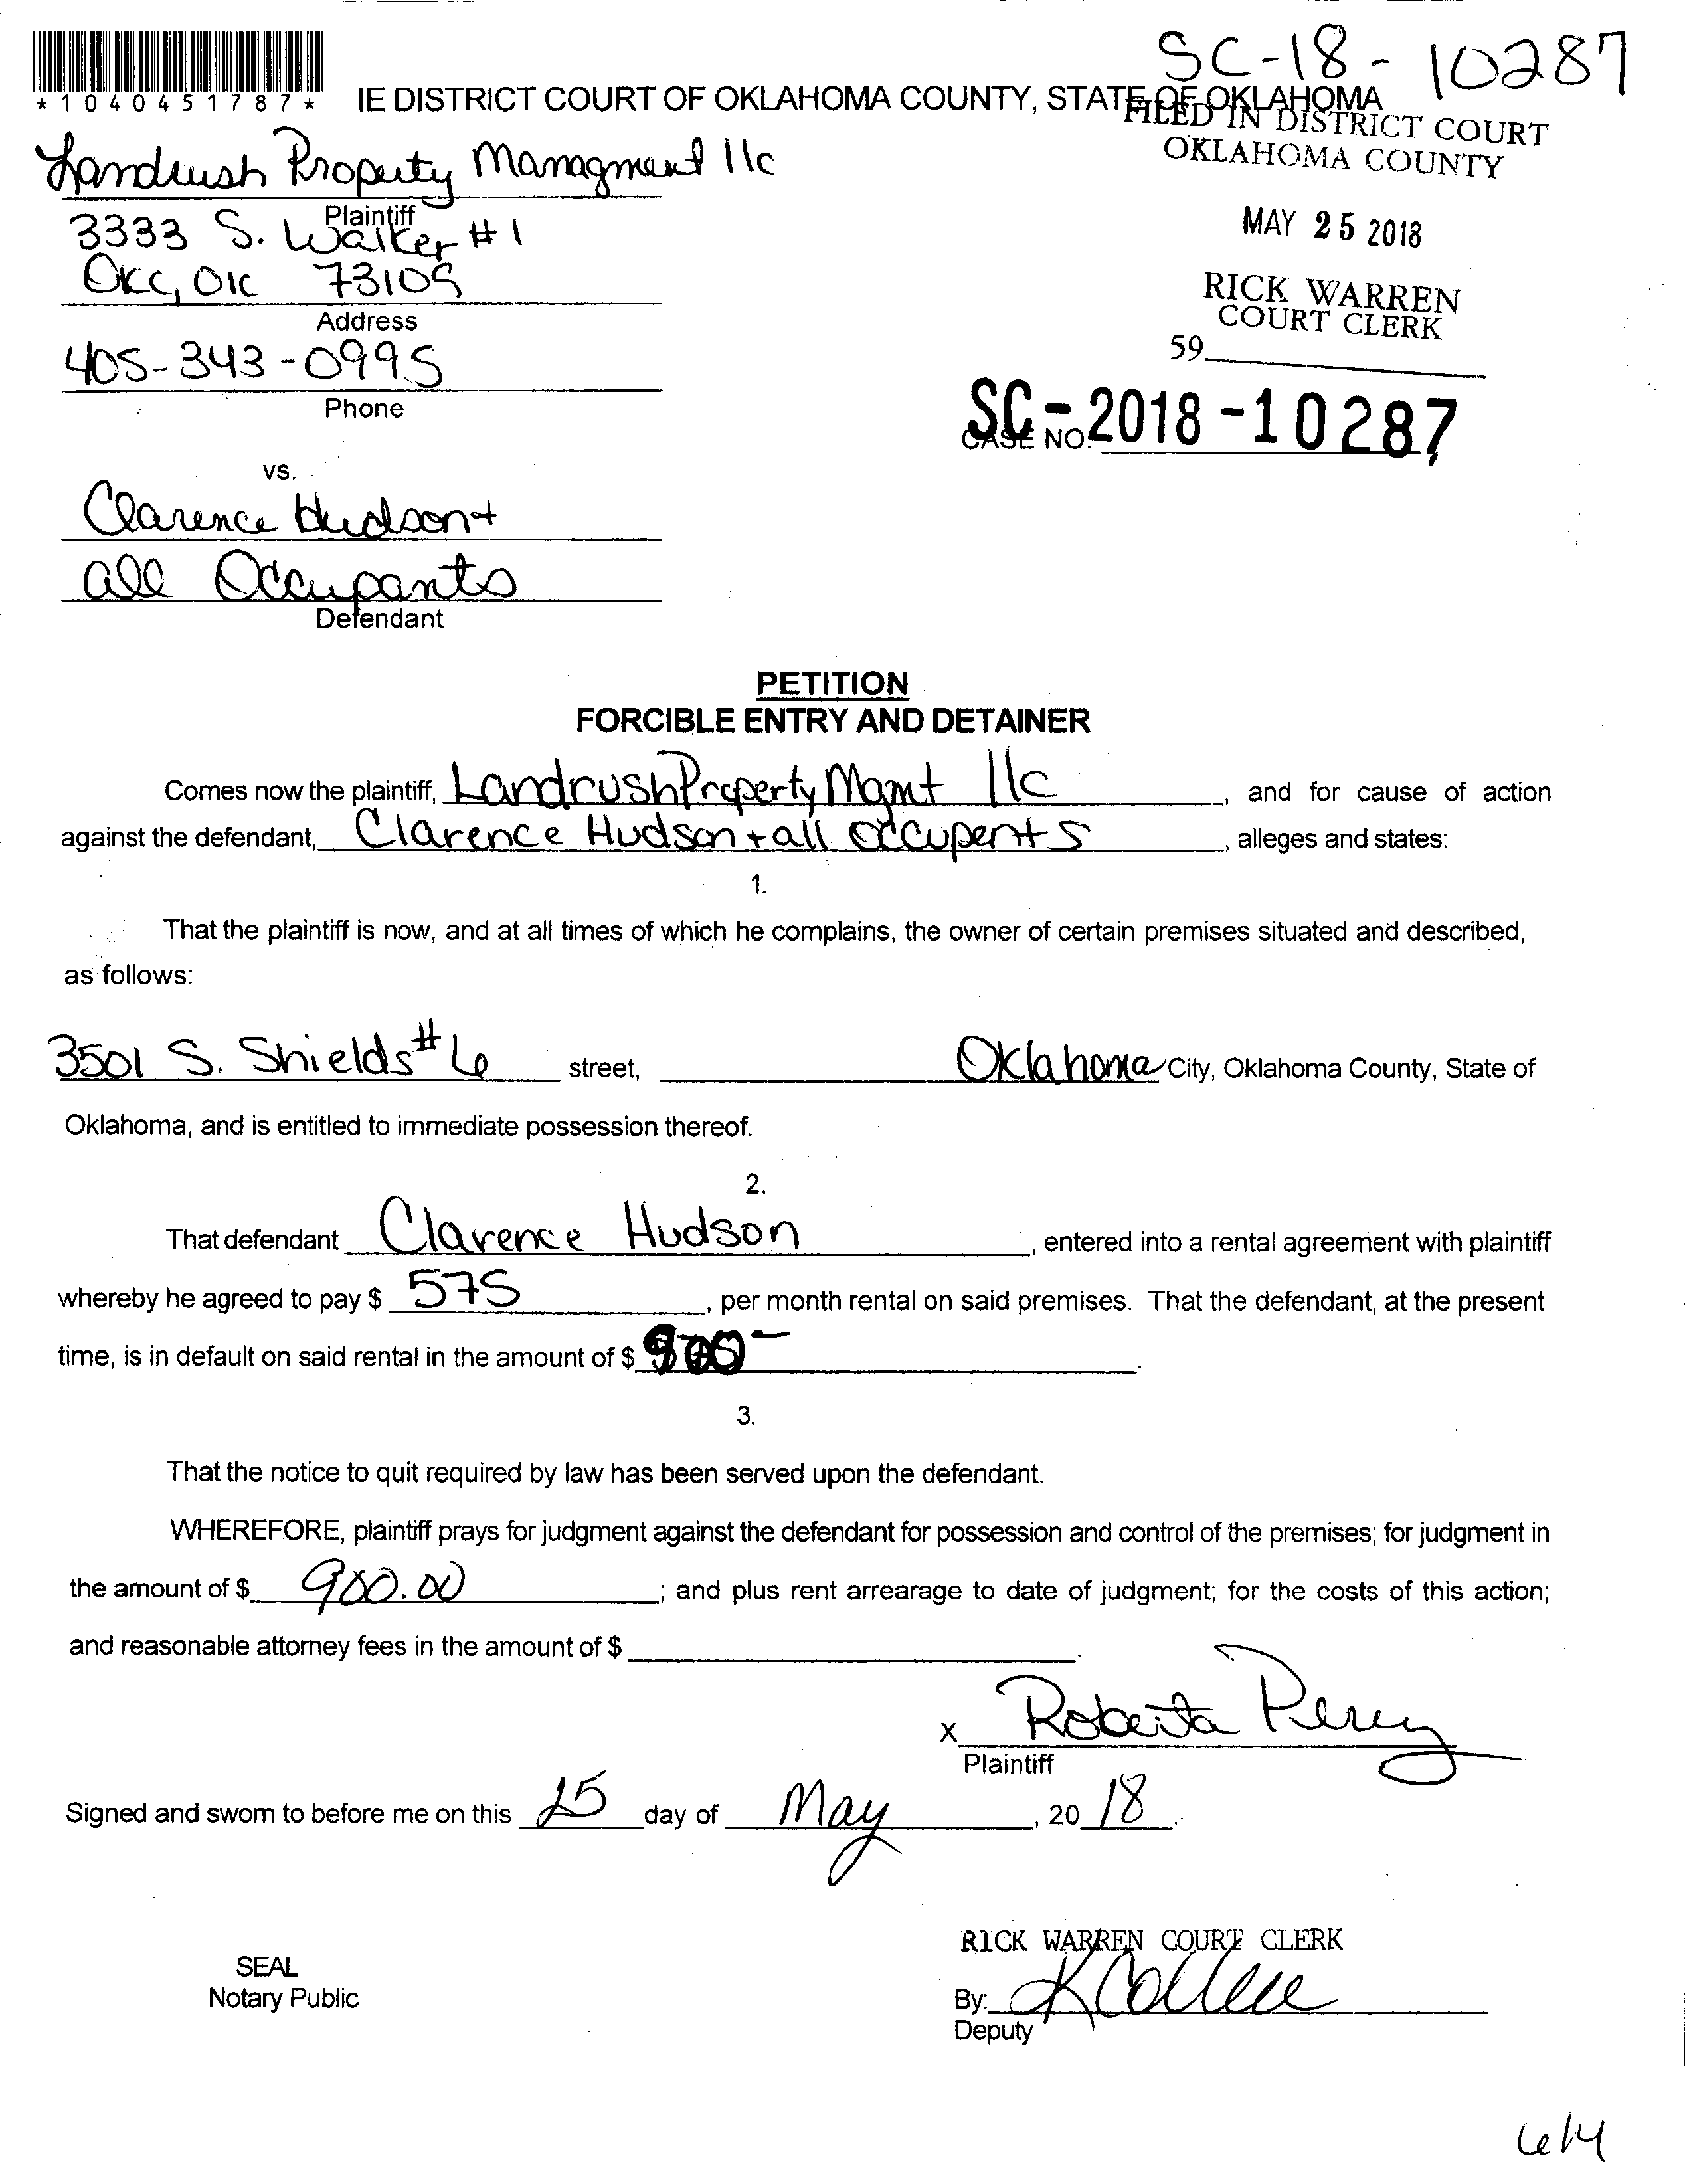 SC-18-10287
*1040451787* IE DISTRICT COURT OF OKLAHOMA COUNTY, STATE OF OKLAHOMA
FILED IN DISTRICT COURT
OKLAHOMA COUNTY
MAY 25 2018
RICK WARREN
COURT CLERK
59
SC-2018-10287
CASE NO.
Landrush Property Managment llc
Plaintiff
3333 S. Walker #1
OKC, OK 73109
Address
405-343-0995
Phone
vs.
Clarence Hudson +
all Occupants
Defendant
PETITION
FORCIBLE ENTRY AND DETAINER
Comes now the plaintiff, Landrush Property Mgmt llc, and for cause of action
against the defendant, Clarence Hudson + all occupents, alleges and states:
1.
That the plaintiff is now, and at all times of which he complains, the owner of certain premises situated and described,
as follows:
3501 S. Shields #6 street, Oklahoma City, Oklahoma County, State of
Oklahoma, and is entitled to immediate possession thereof.
2.
That defendant Clarence Hudson, entered into a rental agreement with plaintiff
whereby he agreed to pay $ 575, per month rental on said premises. That the defendant, at the present
time, is in default on said rental in the amount of $ 900-.
3.
That the notice to quit required by law has been served upon the defendant.
WHEREFORE, plaintiff prays for judgment against the defendant for possession and control of the premises; for judgment in
the amount of $ 900.00; and plus rent arrearage to date of judgment; for the costs of this action;
and reasonable attorney fees in the amount of $ .
X Roberta Perey
Plaintiff
Signed and sworn to before me on this 25 day of May, 20 18.
RICK WARREN COURT CLERK
SEAL
Notary Public
By:
Deputy
614